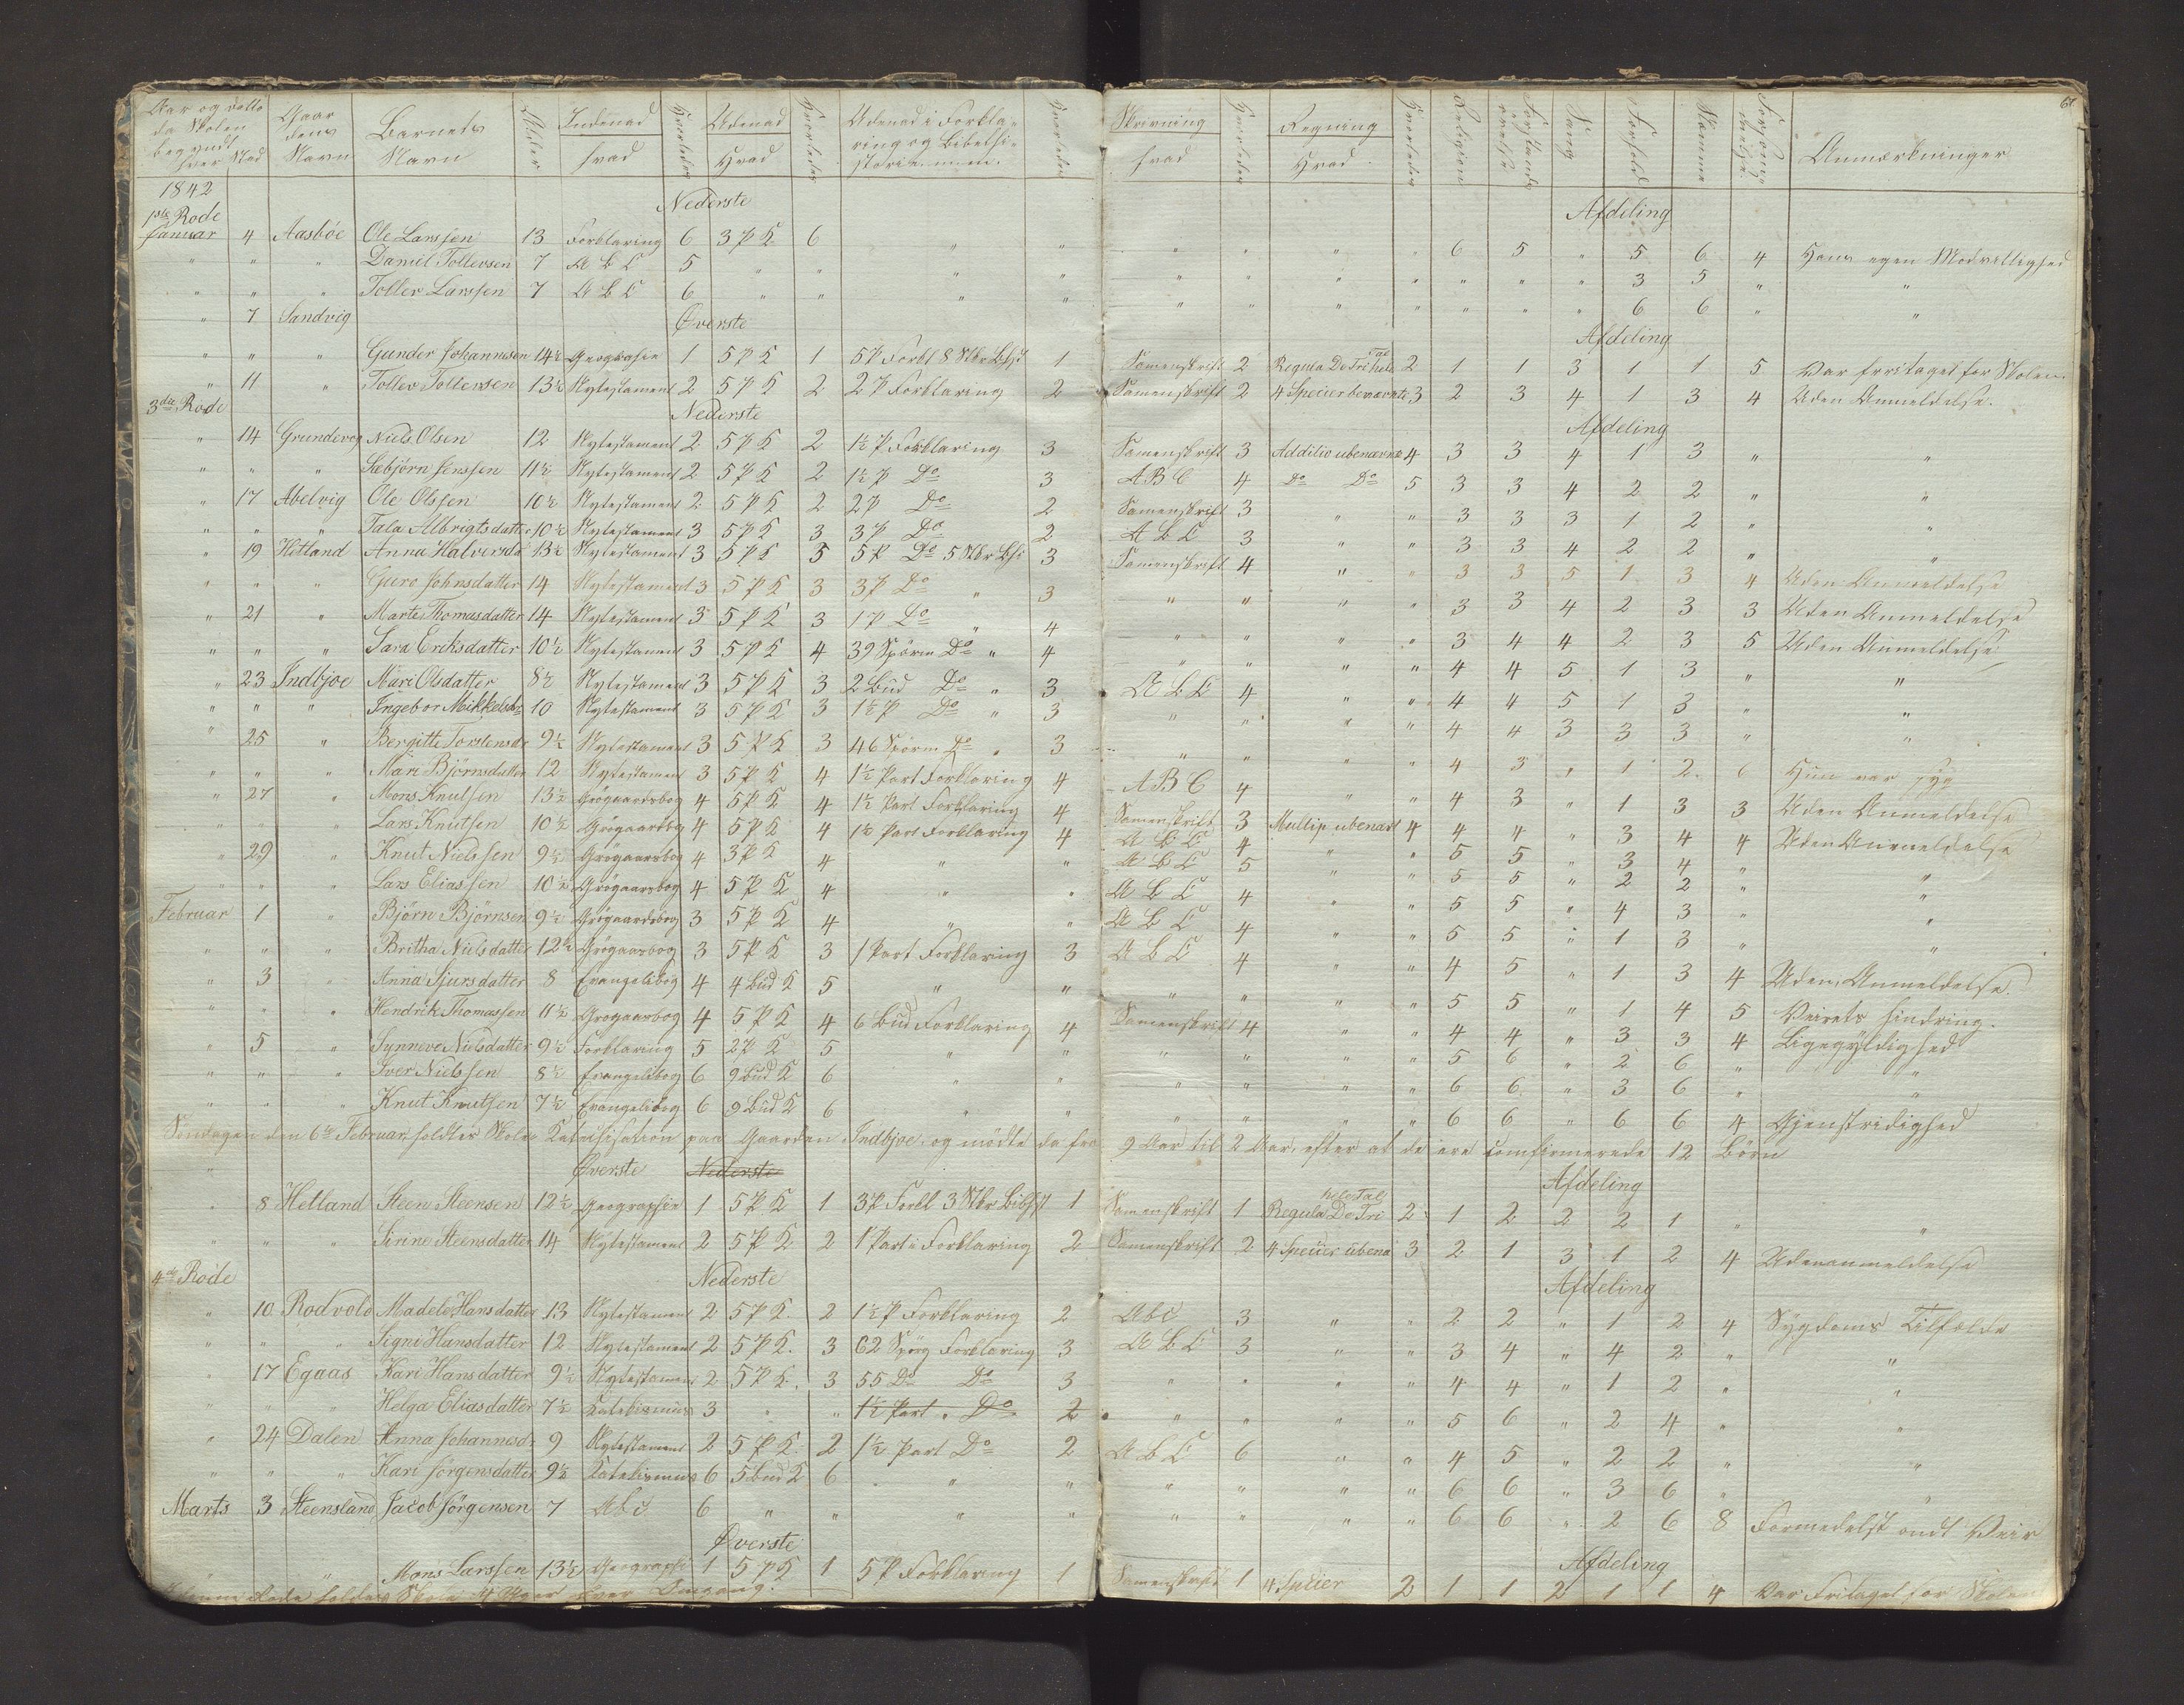 67
Aar og Datto da Skolen begyndt hver Sted | Gaardens Navn | Barnets Navn | Alder | Indenad hvad | Hvorledes | Udenad Hvad | Hvorledes | Udenad i Forklaring og Bibelhistorie. men. | Hvorledes | Skrivning hvad | Hvorledes | Regning Hvad | Hvorledes | Religion | Forstands øvelse | Sang | Forhold | Nemme | Forsømmelse | Anmærkninger
1842
1ste Rode Nederste Afdeling
Januar 4 Aasböe Ole Larssen 13 Forklaring 6 3 P K 6 " " " " " " 6 5 " 5 6 4 Hans egen Modvillighed
" " " Daniel Tollevsen 7 A B C 5 " " " " " " " " " " " 3 5 " "
" " " Tollev Larssen 7 A B C 6 " " " " " " " " " " " 6 6 " "
" 7 Sandvig Øverste Afdeling
" " " Gunder Johannesen 14½ Geographie 1 5 P K 1 5 P Forkl 8 Stkr Bhst 1 Samenskrift 2 Regula De Tri hele Tal 2 1 1 3 1 1 5 Var fritaget for Skolen.
" 11 " Tollev Tollevsen 13½ Nytestament 2 5 P K 2 2 P Forklaring 2 Samenskrift 2 4 Specier benævnte 3 2 3 4 1 3 4 Uden Anmeldelse.
3die Rode Nederste Afdeling
" 14 Grundevog Niels Olsen 12 Nytestament 2 5 P K 2 1½ P Forklaring 3 Samenskrift 3 Additio ubenævnt 4 3 3 4 1 3 " "
" " " Sæbjörn Jenssen 11½ Nytestament 2 5 P K 2 1½ P Do 3 A B C 4 Do Do 5 3 3 4 2 2 " "
" 17 Abelvig Ole Olssen 10½ Nytestament 2 5 P K 2 2 P Do 2 Samenskrift 3 " " 3 3 3 1 2 " "
" " " Tala Albrigtsdatter 10½ Nytestament 3 5 P K 3 3 P Do 2 A B C 3 " " 3 3 4 2 2 " "
" 19 Hetland Anna Halversdr 13½ Nytestament 3 5 P K 3 5 P Do 5 Stkr Bhi 3 Samenskrift 4 " " 3 3 5 1 3 4 Uden Anmeldelse
" " " Guro Johnsdatter 14 Nytestament 3 5 P K 3 3 P Do " 3 " " " " 3 3 4 2 3 3 Uden Anmeldelse
" 21 " Marte Thomasdatter 14 Nytestament 3 5 P K 3 1 P Do " 4 " " " " 3 4 4 2 3 5 Uden Anmeldelse
" " " Sara Ericksdatter 10½ Nytestament 3 5 P K 4 39 Spörm Do " 4 " " " " 4 4 5 1 3 " "
" 23 Indbjoe Mari Olsdatter 8½ Nytestament 3 5 P K 3 2 Bud Do " 3 A B C 4 " " 4 4 5 1 3 " "
" " " Ingebor Mikkelsdr 10 Nytestament 3 5 P K 3 1½ P Do " 3 " " " " 4 4 3 3 3 " "
" 25 " Bergitte Torstensdr 9½ Nytestament 3 5 P K 3 46 Spörm Do " 3 " " " " 4 3 " 1 2 6 Hun var syg
" " " Mari Björnsdatter 12 Nytestament 3 5 P K 4 1½ Part Forklaring 4 A B C 4 " " 4 3 " 1 3 3 Uden Anmeldelse
" 27 " Mons Knutsen 13½ Grögaardsbog 4 5 P K 4 1½ Part Forklaring 4 Samenskrift 3 Multip ubenævt 4 4 4 " 3 4 4 Uden Anmeldelse
" " " Lars Knutsen 10½ Grögaardsbog 4 5 P K 4 1½ Part Forklaring 4 A B C 4 " " 5 5 " 3 4 " "
" 29 " Knut Nielssen 9½ Grögaarsbog 4 3 P K 4 " " A B C 5 " " 5 5 " 2 2 " "
" " " Lars Eliassen 10½ Grögaarsbog 4 5 P K 4 " " A B C 4 " " 5 5 " 4 3 " "
Februar 1 " Björn Björnsen 9½ Grögaardsbog 3 5 P K 4 " " A B C 4 " " 5 5 " 1 3 " "
" " " Britha Nielsdatter 12½ Grögaarsbog 3 5 P K 3 1 Part Forklaring 3 A B C 4 " " 4 5 " 1 3 4 Uden Anmeldelse.
" 3 " Anna Sjursdatter 8 Evangelibog 4 4 Bud K 5 " " " " " " 5 5 " 1 4 5 Veirets Hindring.
" " " Hendrik Thomassen 11½ Grögaarsbog 4 5 P K 4 6 Bud Forklaring 4 Samenskrift 4 " " 4 4 " 3 3 4 Ligegyldighed
" 5 " Synneve Nielsdatter 9½ Forklaring 5 2 P K 5 " " " " " " 5 6 " 2 6 " "
" " " Iver Nielssen 8½ Evangelibog 6 9 Bud K 6 " " " " " " 6 6 " 3 6 " "
" " " Knut Knutsen 7½ Evangelibog 6 9 Bud K 6 " " " " " " 6 6 " 6 6 4 Gjenstridighed
Söndagen den 6te Februar holdtes Skole Katechisation paa Gaarden Indbjoe, og mödte da fra 9 Aar til 2 Aar, efter at de ere comfirmerede 12 Börn
" Øverste Nederste Afdeling
" 8 Hetland Steen Steensen 12½ Geographie 1 5 P K 1 3 P Forkl 3 Stkr Bibhist 1 Samenskrift 1 Regula De Tri hele Tal 2 1 2 2 2 1 " "
" " " Sirine Steensdatter 14 Nytestament 2 5 P K 2 1 Part i Forklaring 2 Samenskrift 2 4 Specier ubenæ 3 2 1 3 1 2 4 Udenanmeldelse
4de Rode Nederste Afdeling
" 10 Rodvold Madele Hansdatter 13 Nytestament 2 5 P K. 2 1½ P Forklaring 2 Abc 3 " " 2 2 " 1 2 4 Sygdoms Tilfælde
" " " Signi Hansdatter 12 Nytestament 2 5 P K. 3 62 Spörg Forklaring 3 A B C 3 " " 3 4 " 4 2 " "
" 17 Egaas Kari Hansdatter 9½ Nytestament 2 5 P K. 3 55 Do Do 3 " " " " 4 4 " 1 2 " "
" " " Helga Eliasdatter 7½ Katekismus 3 " " 1½ Part " Do 2 " " " " 5 6 " 2 4 " "
" 24 Dalen Anna Johannesdr 9 Nytestament 2 5 P K. 2 1½ Part Do 2 A B C 6 " " 4 5 " 2 2 " "
" " " Kari Jörgensdatter 9½ Katekismus 6 5 Bud K 6 " " " " " " 6 6 " 3 6 " "
Marts 3 Steensland Jacob Jörgensen 7 Abc 6 " " " " " " " " 6 6 " 2 6 8 Formedelst ondt Veir
Øverste Afdeling
" " Mons Larssen 13½ Geographi 1 5 P K 1 5 P Forklaring 1 Samenskrift 1 4 Specier 2 1 1 2 1 1 4 Var Fritaget for Skolen
denne Rode holdes Skole 4 Uger hver Omgang.